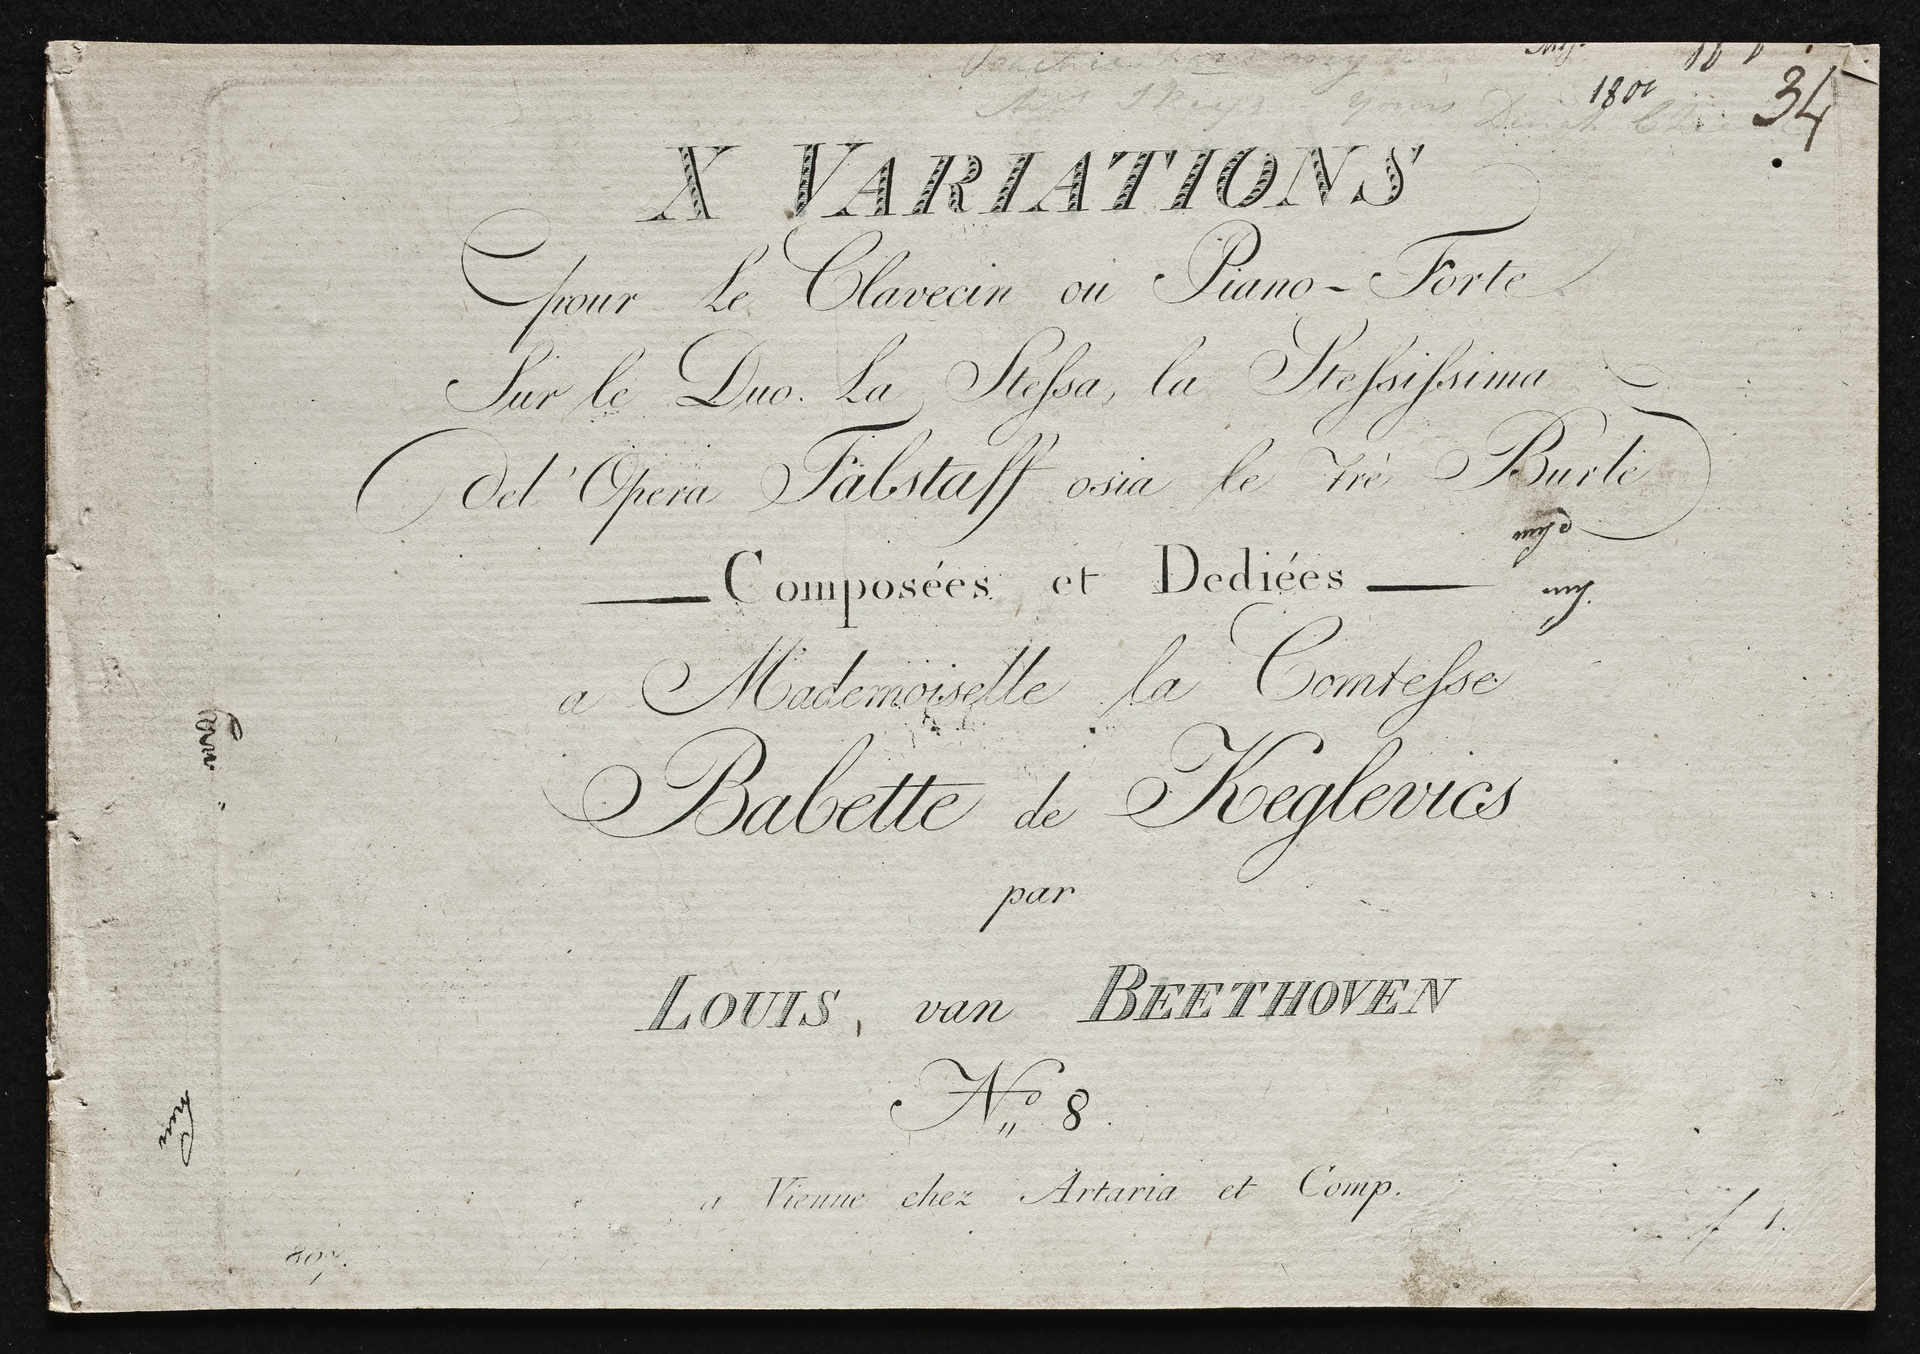 1801
34
X VARIATIONS
pour Le Clavecin ou Piano-Forte
Sur le Duo. La Stessa, la Stessissima
del'Opera Falstaff osia le Trè Burle
Composées et Dediées
a Mademoiselle la Comtesse
Babette de Keglevics
par
LOUIS, van BEETHOVEN
No 8.
a Vienne chez Artaria et Comp.
f 1.
807.